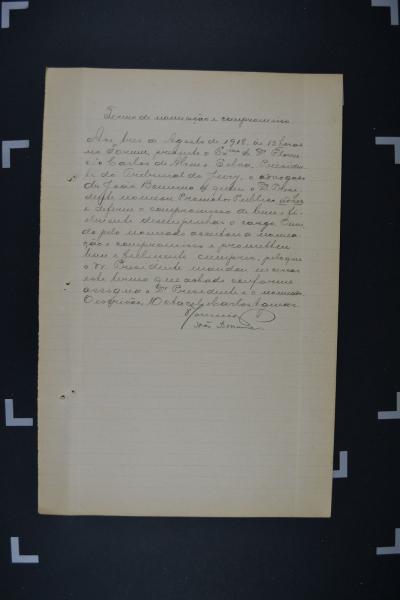 Termo de nomeação e compromisso.
Aos tres de Agosto de 1918, ás 12 horas
no Forum, presente o Exmo Sr. Dr.
Carlos de Abreu e Silva, Preside
te do Tribunal do Jury, o advogado
João a quem o Dr.
nomeou Promotor Publico
e deferiu o compromisso de bem e fi
elmente desempenhar o cargo.
do pelo nomeado acceitou a nomea
ção e compromisso e prometteu
bem e fielmente cumprir, pelo que
o Dr. Presidente mandou
este termo que achado conforme
assigna o Dr. Presidente e o nomeado.
O escrivão,
João